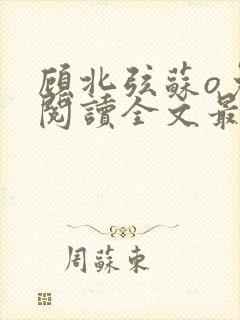 顾北弦蘇o
閱讀全文最
周蘇東